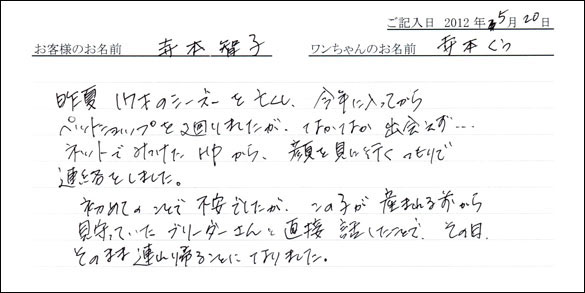 ご記入日 2012年 5月 20日
お客様のお名前 寺本 智子 ワンちゃんのお名前 寺本くう
昨夏 17才のシーズーを亡くし、今年に入ってから
ペットショップを2回りましたが、なかなか出会えず…
ネットでみつけたHPから、顔を見に行くつもりで
連絡をしました。
初めてのことで不安でしたが、この子が産まれる前から
見守っていたブリーダーさんと直接話したことで、その日、
そのまま連れ帰ることになりました。